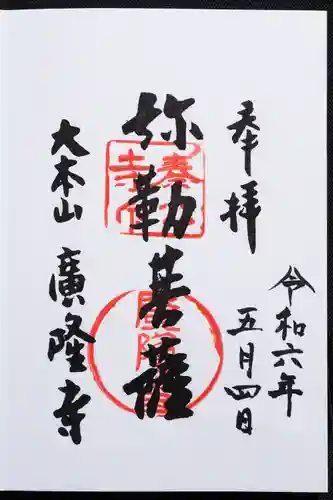 奉拝
令和六年
五月四日
弥勒菩薩
大本山 廣隆寺